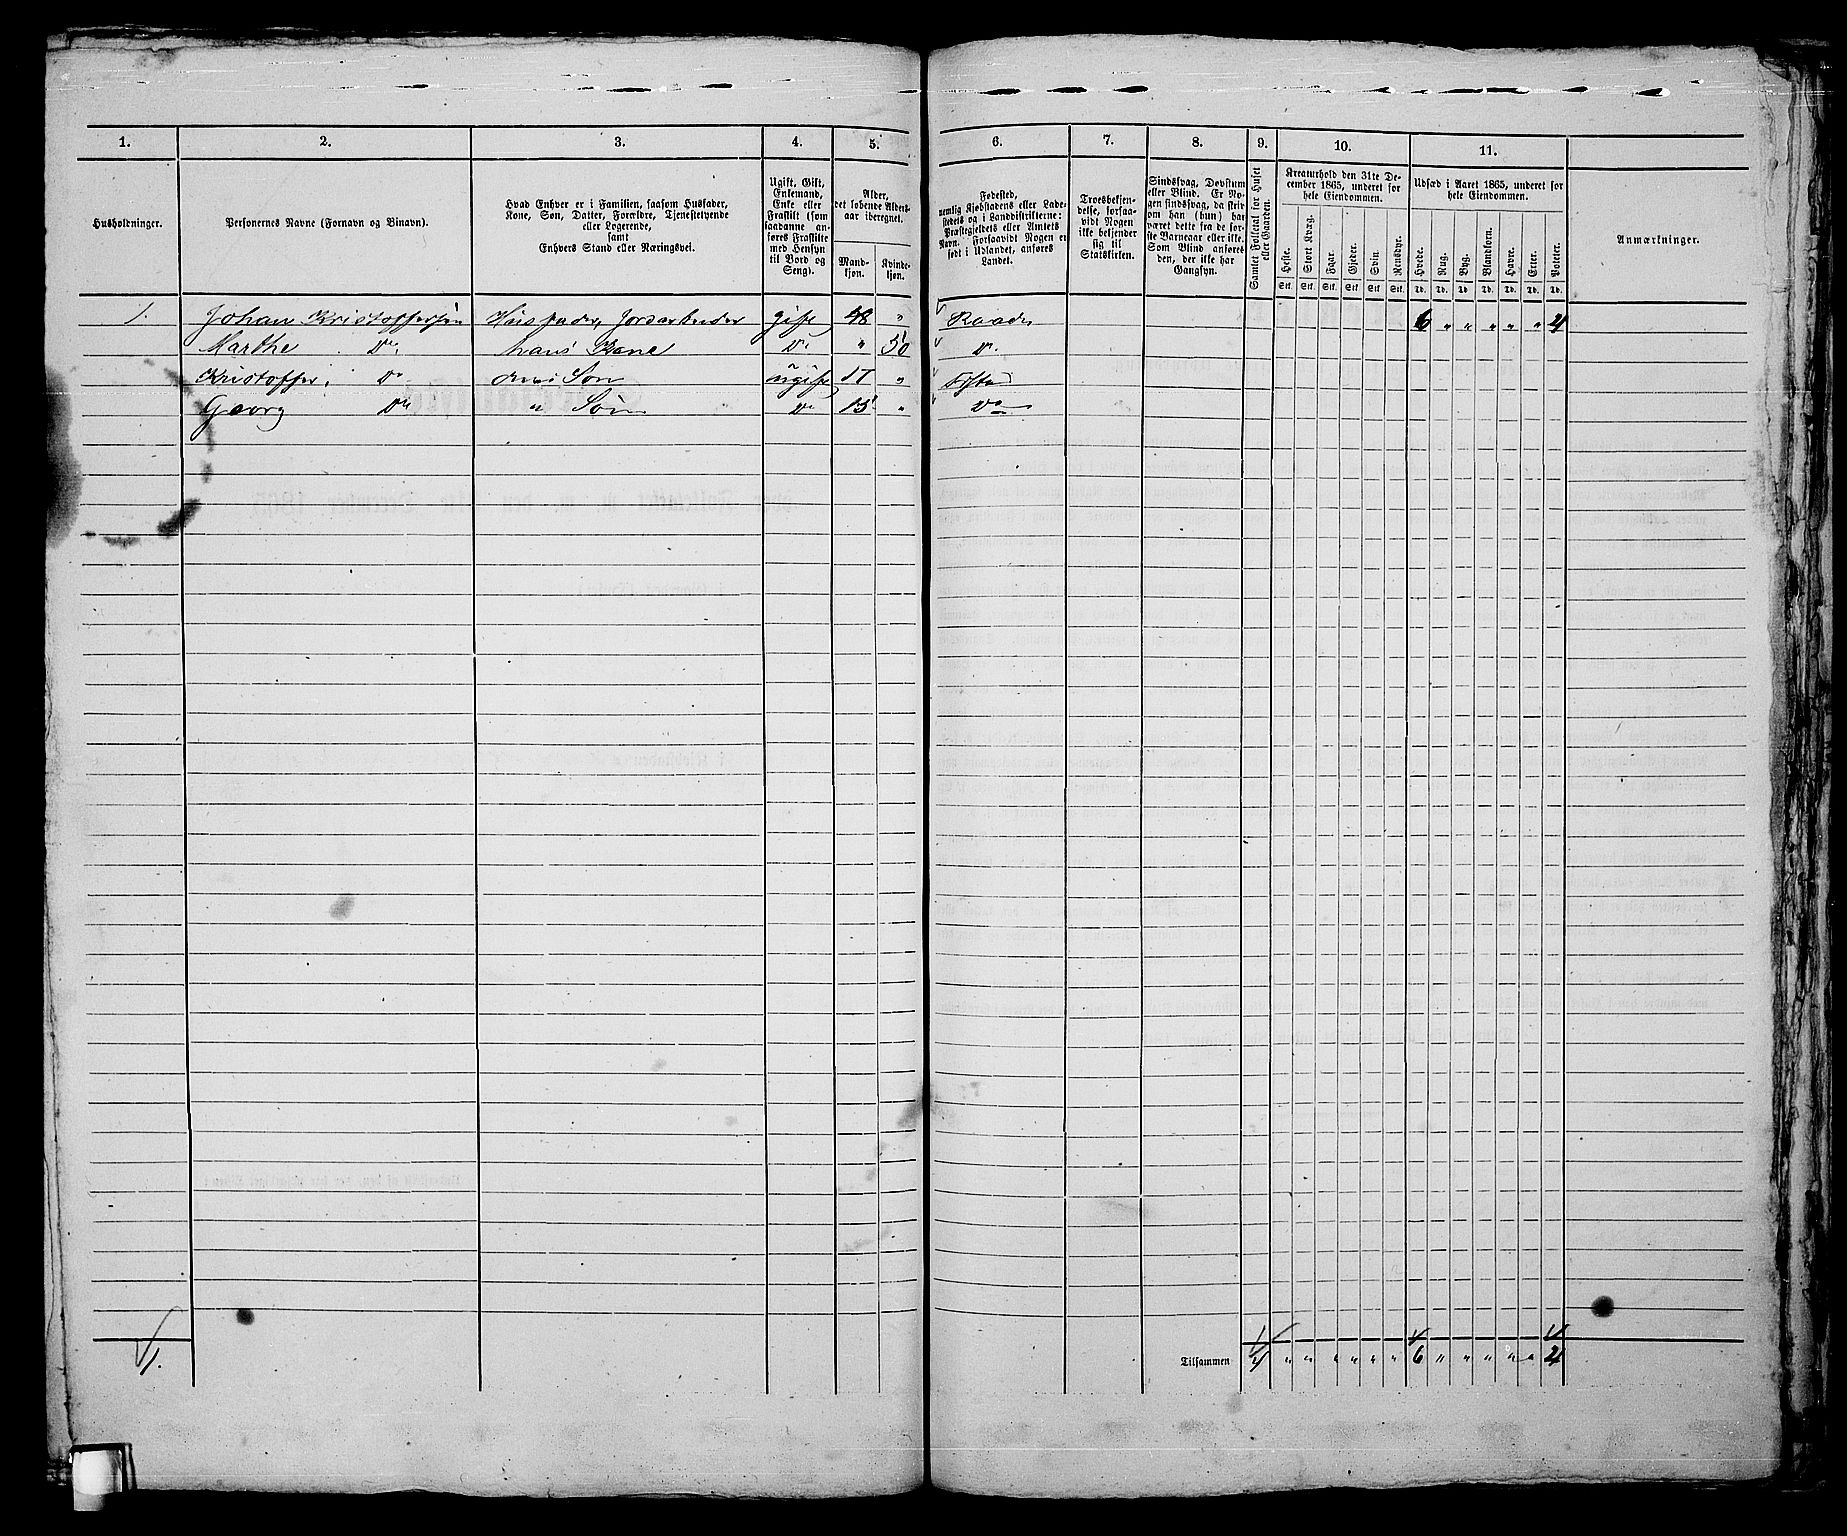 1. 2. 3. 4. 5. 6. 7. 8. 9. 10. 11.
Husholdninger.
Personernes Navne (Fornavn og Binavn).
Hvad Enhver er i Familien, saasom Husfader,
Kone, Søn, Datter, Forældre, Tjenestetyende
eller Logerende,
samt
Enhvers Stand eller Næringsvei.
Ugift, Gift,
Enkemand,
Enke eller
Fraskilt (som
saadanne an-
føres Fraskilte
med Hensyn
til Bord og
Seng).
Alder,
det løbende Alders-
aar iberegnet.
Mand-
kjøn.
Kvinde-
kjøn.
Fødested,
nemlig Kjøbstadens eller Lade-
stedets og i Landdistrikterne:
Præstegjeldets eller Amtets
Navn. Forsaavidt Nogen er
født i Udlandet, anføres
Landet.
Troesbekjen-
delse, forsaa-
vidt Nogen
ikke bekjender
sig til
Statskirken.
Sindssvag, Døvstum
eller Blind. Er No-
gen sindssvag, da skriv
om han (hun) har
været dette fra de før-
ste Barneaar eller ikke.
Som Blind anføres
den, der ikke har
Gangsyn.
Samlet Folketal for Huset
eller Gaarden.
Kreaturhold den 31te De-
cember 1865, underet for
hele Eiendommen.
Heste. Stort Kvæg. Faar. Gjeder. Svin. Rensdyr.
Stk. Stk. Stk. Stk. Stk. Stk.
Udsæd i Aaret 1865, underet for
hele Eiendommen.
Hvede. Rug. Byg. Blandkorn. Havre. Erter. Poteter.
Td. Td. Td. Td. Td. Td. Td.
Anmærkninger.
1. Johan Kristoffersen Husfader, Jordarbeider gift 48 " Raade 6 " " " " " 4
Marthe Do. hans Kone Do " 50 Do.
Kristoffer Do Søn ugift 17 "
Georg Do " Søn Do 15 " Do
1.
Tilsammen 4 " " " " " " 6 " " " " " 4